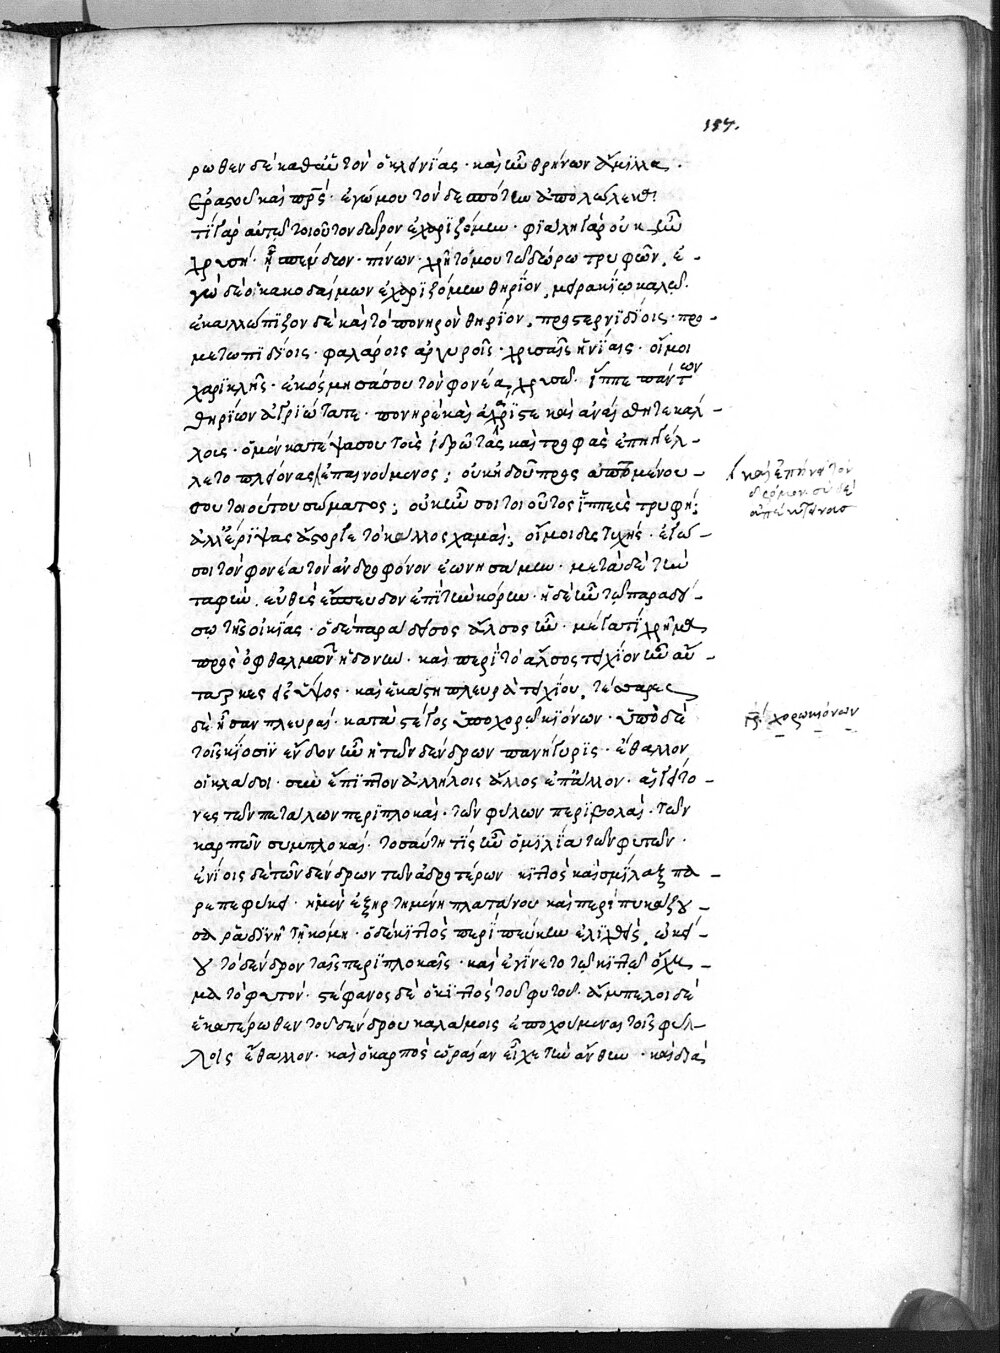 157.
ρωθεν δὲ καθ' αὑτὸν ὁ κλεινίας · καὶ ἦν θρήνων ἅμιλλα ·
ἐραστοῦ καὶ πρς · ἐγώ μου τὸν δεσπότην ἀπολώλεκα
τί γὰρ αὐτῷ τοιοῦτον δῶρον ἐχαριζόμην · φιάλη γὰρ οὐκ ἦν
χρυσῆ · ἢ ἔσπενδεν · πίνων · χρῆτό μου τῷ δώρῳ τρυφῶν, ἐ-
γὼ δὲ ὁ κακοδαίμων ἐχαριζόμην θηρίον, μειρακίῳ καλῷ ·
ἐκαλλώπιζον δὲ καὶ τὸ πονηρὸν θηρίον, προστερνιδίοις · προ-
μετωπιδίοις · φαλάροις ἀργυροῖς · χρυσαῖς ἡνίαις · οἴμοι
χαρίκλης · ἐκόσμησά σου τὸν φονέα, χρυσῷ. ἵππε πάντων
θηρίων ἀγριώτατε · πονηρὲ καὶ ἀχάριστε καὶ ἀναίσθητε κάλ-
λους · ὁ μὲν κατέψα σου τοὺς ἱδρῶτας καὶ τροφὰς ἐπηγγέλ-
λετο πλείονας ἐπαινούμενος ; οὐχ ἥδου προσαπτομένου -
σου τοιούτου σώματος ; οὐκ ἦν σοι τοιοῦτος ἱππεὺς τρυφή ;
ἀλλ' ἔρριψας ἄστοργε τὸ κάλλος χαμαί ; οἴμοι δυστυχής · ἐγώ -
σοι τὸν φονέα τὸν ἀνδροφόνον ἐωνησάμην · μετὰ δὲ τὴν
ταφὴν, εὐθὺς ἔσπευδον ἐπὶ τὴν κόρην · ἡ δὲ ἦν τῷ παραδεί -
σῳ τῆς οἰκίας · ὁ δὲ παράδεισος ἄλσος ἦν · μέγα τι χρῆμα
πρὸς ὀφθαλμῶν ἡδονὴν · καὶ περὶ τὸ ἄλσος τειχίον ἦν αὔ -
ταρκες εἰς ὕψος · καὶ ἑκάστη πλευρὰ τειχίου, τέσσαρες
δὲ ἦσαν πλευραί · κατάστεγος ὑπὸ χορῷ κιόνων · ὑπὸ δὲ
τοῖς κίοσιν ἔνδον ἦν ἡ τῶν δένδρων πανήγυρις · ἔθαλλον
οἱ κλάδοι · συνέπιπτον ἀλλήλοις ἄλλος ἐπ' ἄλλον · αἱ γείτο -
νες τῶν πετάλων περιπλοκαί · τῶν φύλλων περιβολαί · τῶν
καρπῶν συμπλοκαί · τοσαύτη τις ἦν ὁμιλία τῶν φυτῶν ·
ἐνίοις δὲ τῶν δένδρων τῶν ἁδροτέρων κιττὸς καὶ σμίλαξ πα -
ρεπεφύκει · ἡ μὲν ἐξηρτημένη πλατάνου καὶ περιπυκάζου -
σα ῥαδινῇ τῇ κόμῃ · ὁ δὲ κιττὸς περὶ πεύκην ἑλιχθεὶς ᾠκεί-
ου τὸ δένδρον ταῖς περιπλοκαῖς · καὶ ἐγίνετο τῷ κιττῷ ὄχη -
μα τὸ φυτόν · στέφανος δὲ ὁ κιττὸς τοῦ φυτοῦ · ἄμπελοι δὲ
ἑκατέρωθεν τοῦ δένδρου καλάμοις ἐποχούμεναι τοῖς φύλ-
λοις ἔθαλλον · καὶ ὁ καρπὸς ὡραίαν εἶχε τὴν ἄνθην · καὶ διὰ
καὶ ἐπῄνει τὸν
δρόμον σὺ δὲ
ἀπέκτεινας
χορῷ κιόνων